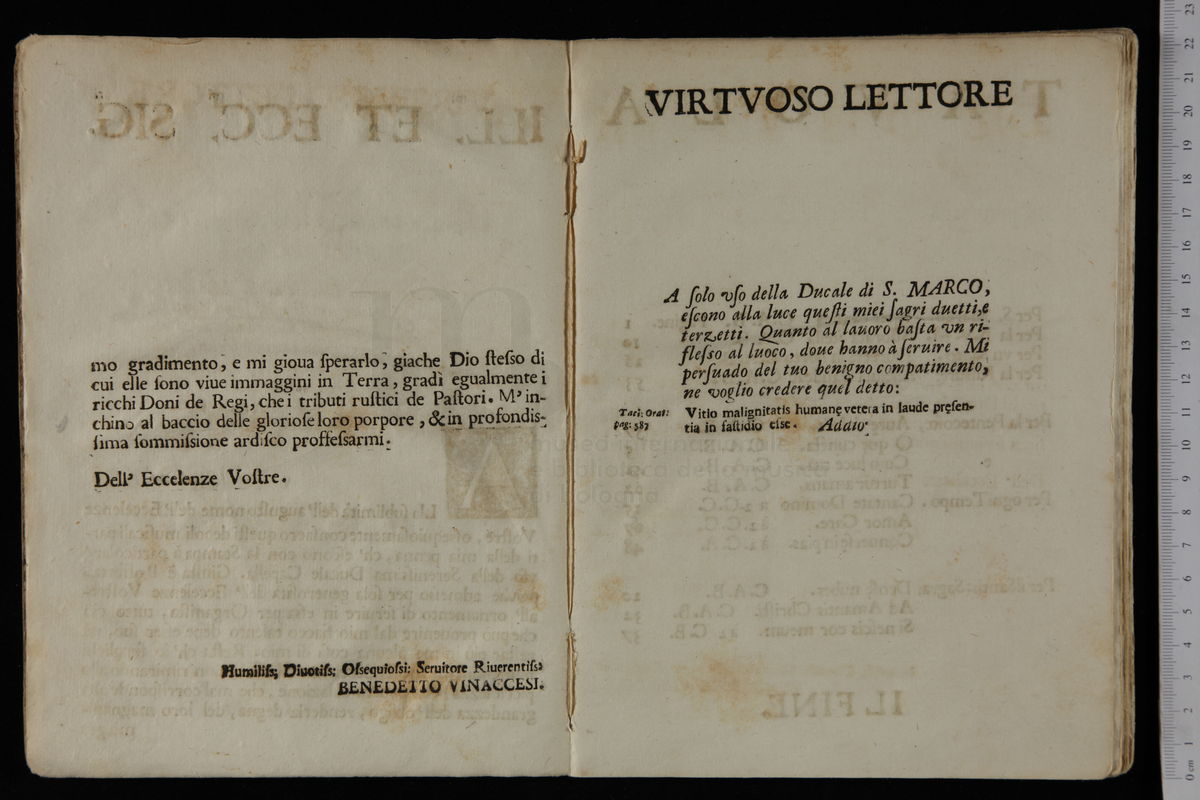 mo gradimento, e mi gioua ſperarlo, giache Dio ſteſso di
cui elle ſono viue immaggini in Terra, gradì egualmente i
ricchi Doni de Regi, che i tributi ruſtici de Paſtori. M' in-
chino al baccio delle glorioſe loro porpore, & in profondiſ-
ſima ſommiſsione ardiſco proffeſsarmi.
Dell' Eccelenze Voſtre.
Humiliſs; Diuotiſs: Oſsequioſsi: Seruitore Riuerentiſs:
BENEDETTO VINACCESI.
VIRTVOSO LETTORE
A ſolo vſo della Ducale di S. MARCO,
eſcono alla luce queſti miei ſagri duetti, e
terzetti. Quanto al lauoro baſta vn ri-
fleſso al luoco, doue hanno à ſeruire. Mi
perſuado del tuo benigno compatimento,
ne voglio credere quel detto:
Taci: Orat:
pag: 583
Vitio malignitatis humanę vetera in laude pręſen-
tia in faſtidio eſse. Addio.
museo internazionale
e biblioteca della musica
di Bologna